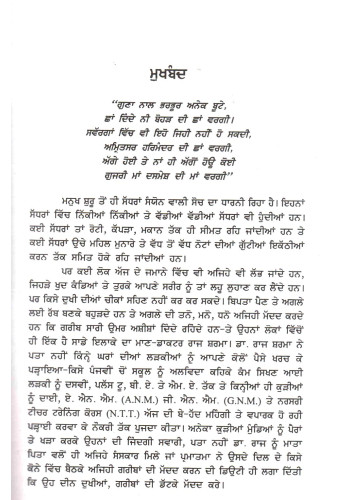 ਮੁਖਬੰਦ
"ਗੁਣਾ ਨਾਲ ਭਰਭੂਰ ਅਨੇਕ ਬੂਟੇ,
ਛਾਂ ਦਿੰਦੇ ਨੀ ਬੋਹੜ ਦੀ ਛਾਂ ਵਰਗੀ।
ਸਵੱਰਗਾਂ ਵਿੱਚ ਵੀ ਇਹੋ ਜਿਹੀ ਨਹੀਂ ਹੋ ਸਕਦੀ,
ਅਮ੍ਰਿਤਸਰ ਹਰਿਮੰਦਰ ਦੀ ਛਾਂ ਵਰਗੀ,
ਅੱਗੇ ਹੋਈ ਤੇ ਨਾਂ ਹੀ ਅੱਗੋਂ ਹੋਊ ਕੋਈ
ਗੁਜਰੀ ਮਾਂ ਦਸਮੇਸ਼ ਦੀ ਮਾਂ ਵਰਗੀ"
ਮਨੁਖ ਸ਼ੁਰੂ ਤੋਂ ਹੀ ਸੱਧਰਾਂ ਸਿਯੋਨ ਵਾਲੀ ਸੋਚ ਦਾ ਧਾਰਨੀ ਰਿਹਾ ਹੈ। ਇਹਨਾਂ
ਸੱਧਰਾਂ ਵਿੱਚ ਨਿੱਕੀਆਂ ਨਿੱਕੀਆਂ ਤੇ ਵੱਡੀਆਂ ਵੱਡੀਆਂ ਸੱਧਰਾਂ ਵੀ ਹੁੰਦੀਆਂ ਹਨ।
ਕਈ ਸੱਧਰਾਂ ਤਾਂ ਰੋਟੀ, ਕੱਪੜਾ, ਮਕਾਨ ਤੱਕ ਹੀ ਸੀਮਤ ਰਹਿ ਜਾਂਦੀਆਂ ਹਨ ਤੇ
ਕਈ ਸੱਧਰਾਂ ਉਚੇ ਮਹਿਲ ਮੁਨਾਰੇ ਤੇ ਵੱਧ ਤੋਂ ਵੱਧ ਨੋਟਾਂ ਦੀਆਂ ਗੁੱਟੀਆਂ ਇਕੱਠੀਆਂ
ਕਰਨ ਤੱਕ ਸਮਿਤ ਹੋਕੇ ਰਹਿ ਜਾਂਦੀਆਂ ਹਨ।
ਪਰ ਕਈ ਲੋਕ ਅੱਜ ਦੇ ਜਮਾਨੇ ਵਿੱਚ ਵੀ ਅਜਿਹੇ ਵੀ ਲੱਭ ਜਾਂਦੇ ਹਨ,
ਜਿਹੜੇ ਖੁਦ ਕੰਡਿਆਂ ਤੇ ਤੁਰਕੇ ਆਪਣੇ ਸਰੀਰ ਨੂੰ ਤਾਂ ਲਹੂ ਲੁਹਾਣ ਕਰ ਲੈਂਦੇ ਹਨ।
ਪਰ ਕਿਸੇ ਦੁਖੀ ਦੀਆਂ ਚੀਕਾਂ ਸਹਿਣ ਨਹੀਂ ਕਰ ਕਰ ਸਕਦੇ। ਬਿਪਤਾ ਪੈਣ ਤੇ ਅਗਲੇ
ਲਈ ਰੱਬ ਬਣਕੇ ਬਹੁੜਦੇ ਹਨ ਤੇ ਅਗਲੇ ਦੀ ਤਨੋਂ, ਮਨੋਂ, ਧਨੋਂ ਅਜਿਹੀ ਮੱਦਦ ਕਰਦੇ
ਹਨ ਕਿ ਗਰੀਬ ਸਾਰੀ ਉਮਰ ਅਸ਼ੀਸ਼ਾਂ ਦਿੰਦੇ ਰਹਿੰਦੇ ਹਨ-ਤੇ ਉਹਨਾਂ ਲੋਕਾਂ ਵਿੱਚੋਂ
ਹੀ ਇੱਕ ਹੈ ਸਾਡੇ ਇਲਾਕੇ ਦਾ ਮਾਣ-ਡਾਕਟਰ ਰਾਜ ਸ਼ਰਮਾ। ਡਾ. ਰਾਜ ਸ਼ਰਮਾ ਨੇ
ਪਤਾ ਨਹੀਂ ਕਿੰਨ੍ਹੇ ਘਰਾਂ ਦੀਆਂ ਲੜਕੀਆਂ ਨੂੰ ਆਪਣੇ ਕੋਲੋਂ ਪੈਸੇ ਖਰਚ ਕੇ
ਪੜ੍ਹਾਇਆ-ਕਿਸੇ ਪੰਜਵੀਂ ਚੋਂ ਸਕੂਲ ਨੂੰ ਅਲਵਿਦਾ ਕਹਿਕੇ ਕੰਮ ਸਿਖਣ ਆਈ
ਲੜਕੀ ਨੂੰ ਦਸਵੀਂ, ਪਲੱਸ ਟੂ, ਬੀ. ਏ. ਤੇ ਐਮ. ਏ. ਤੱਕ ਤੇ ਕਿਨ੍ਹੀਆਂ ਹੀ ਕੁੜੀਆਂ
ਨੂੰ ਦਾਈ, ਏ. ਐਨ. ਐਮ. (A.N.M.) ਜੀ. ਐਨ. ਐਮ. (G.N.M.) ਤੇ ਨਰਸਰੀ
ਟੀਚਰ ਟਰੇਨਿੰਗ ਕੋਰਸ (N.T.T.) ਅੱਜ ਦੀ ਬੇ-ਹੱਦ ਮਹਿੰਗੀ ਤੇ ਵਪਾਰਕ ਹੋ ਰਹੀ
ਪੜ੍ਹਾਈ ਕਰਵਾ ਕੇ ਨੌਕਰੀ ਤੱਕ ਪੁਜਦਾ ਕੀਤਾ। ਅਨੇਕਾਂ ਕੁੜੀਆਂ ਮੁੰਡਿਆਂ ਨੂੰ ਪੈਰਾਂ
ਤੇ ਖੜਾ ਕਰਕੇ ਉਹਨਾਂ ਦੀ ਜਿੰਦਗੀ ਸਵਾਰੀ, ਪਤਾ ਨਹੀਂ ਡਾ. ਰਾਜ ਨੂੰ ਮਾਤਾ
ਪਿਤਾ ਵਲੋਂ ਹੀ ਅਜਿਹੇ ਸੰਸਕਾਰ ਮਿਲੇ ਜਾਂ ਪ੍ਰਮਾਤਮਾ ਨੇ ਉਸਦੇ ਦਿਲ ਦੇ ਕਿਸੇ
ਕੋਨੇ ਵਿੱਚ ਬੈਠਕੇ ਅਜਿਹੀ ਗਰੀਬਾਂ ਦੀ ਮੱਦਦ ਕਰਨ ਦੀ ਡਿਊਟੀ ਹੀ ਲਗਾ ਦਿੱਤੀ
ਕਿ ਉਹ ਦੀਨ ਦੁਖੀਆਂ, ਗਰੀਬਾਂ ਦੀ ਡੱਟਕੇ ਮੱਦਦ ਕਰੇ।